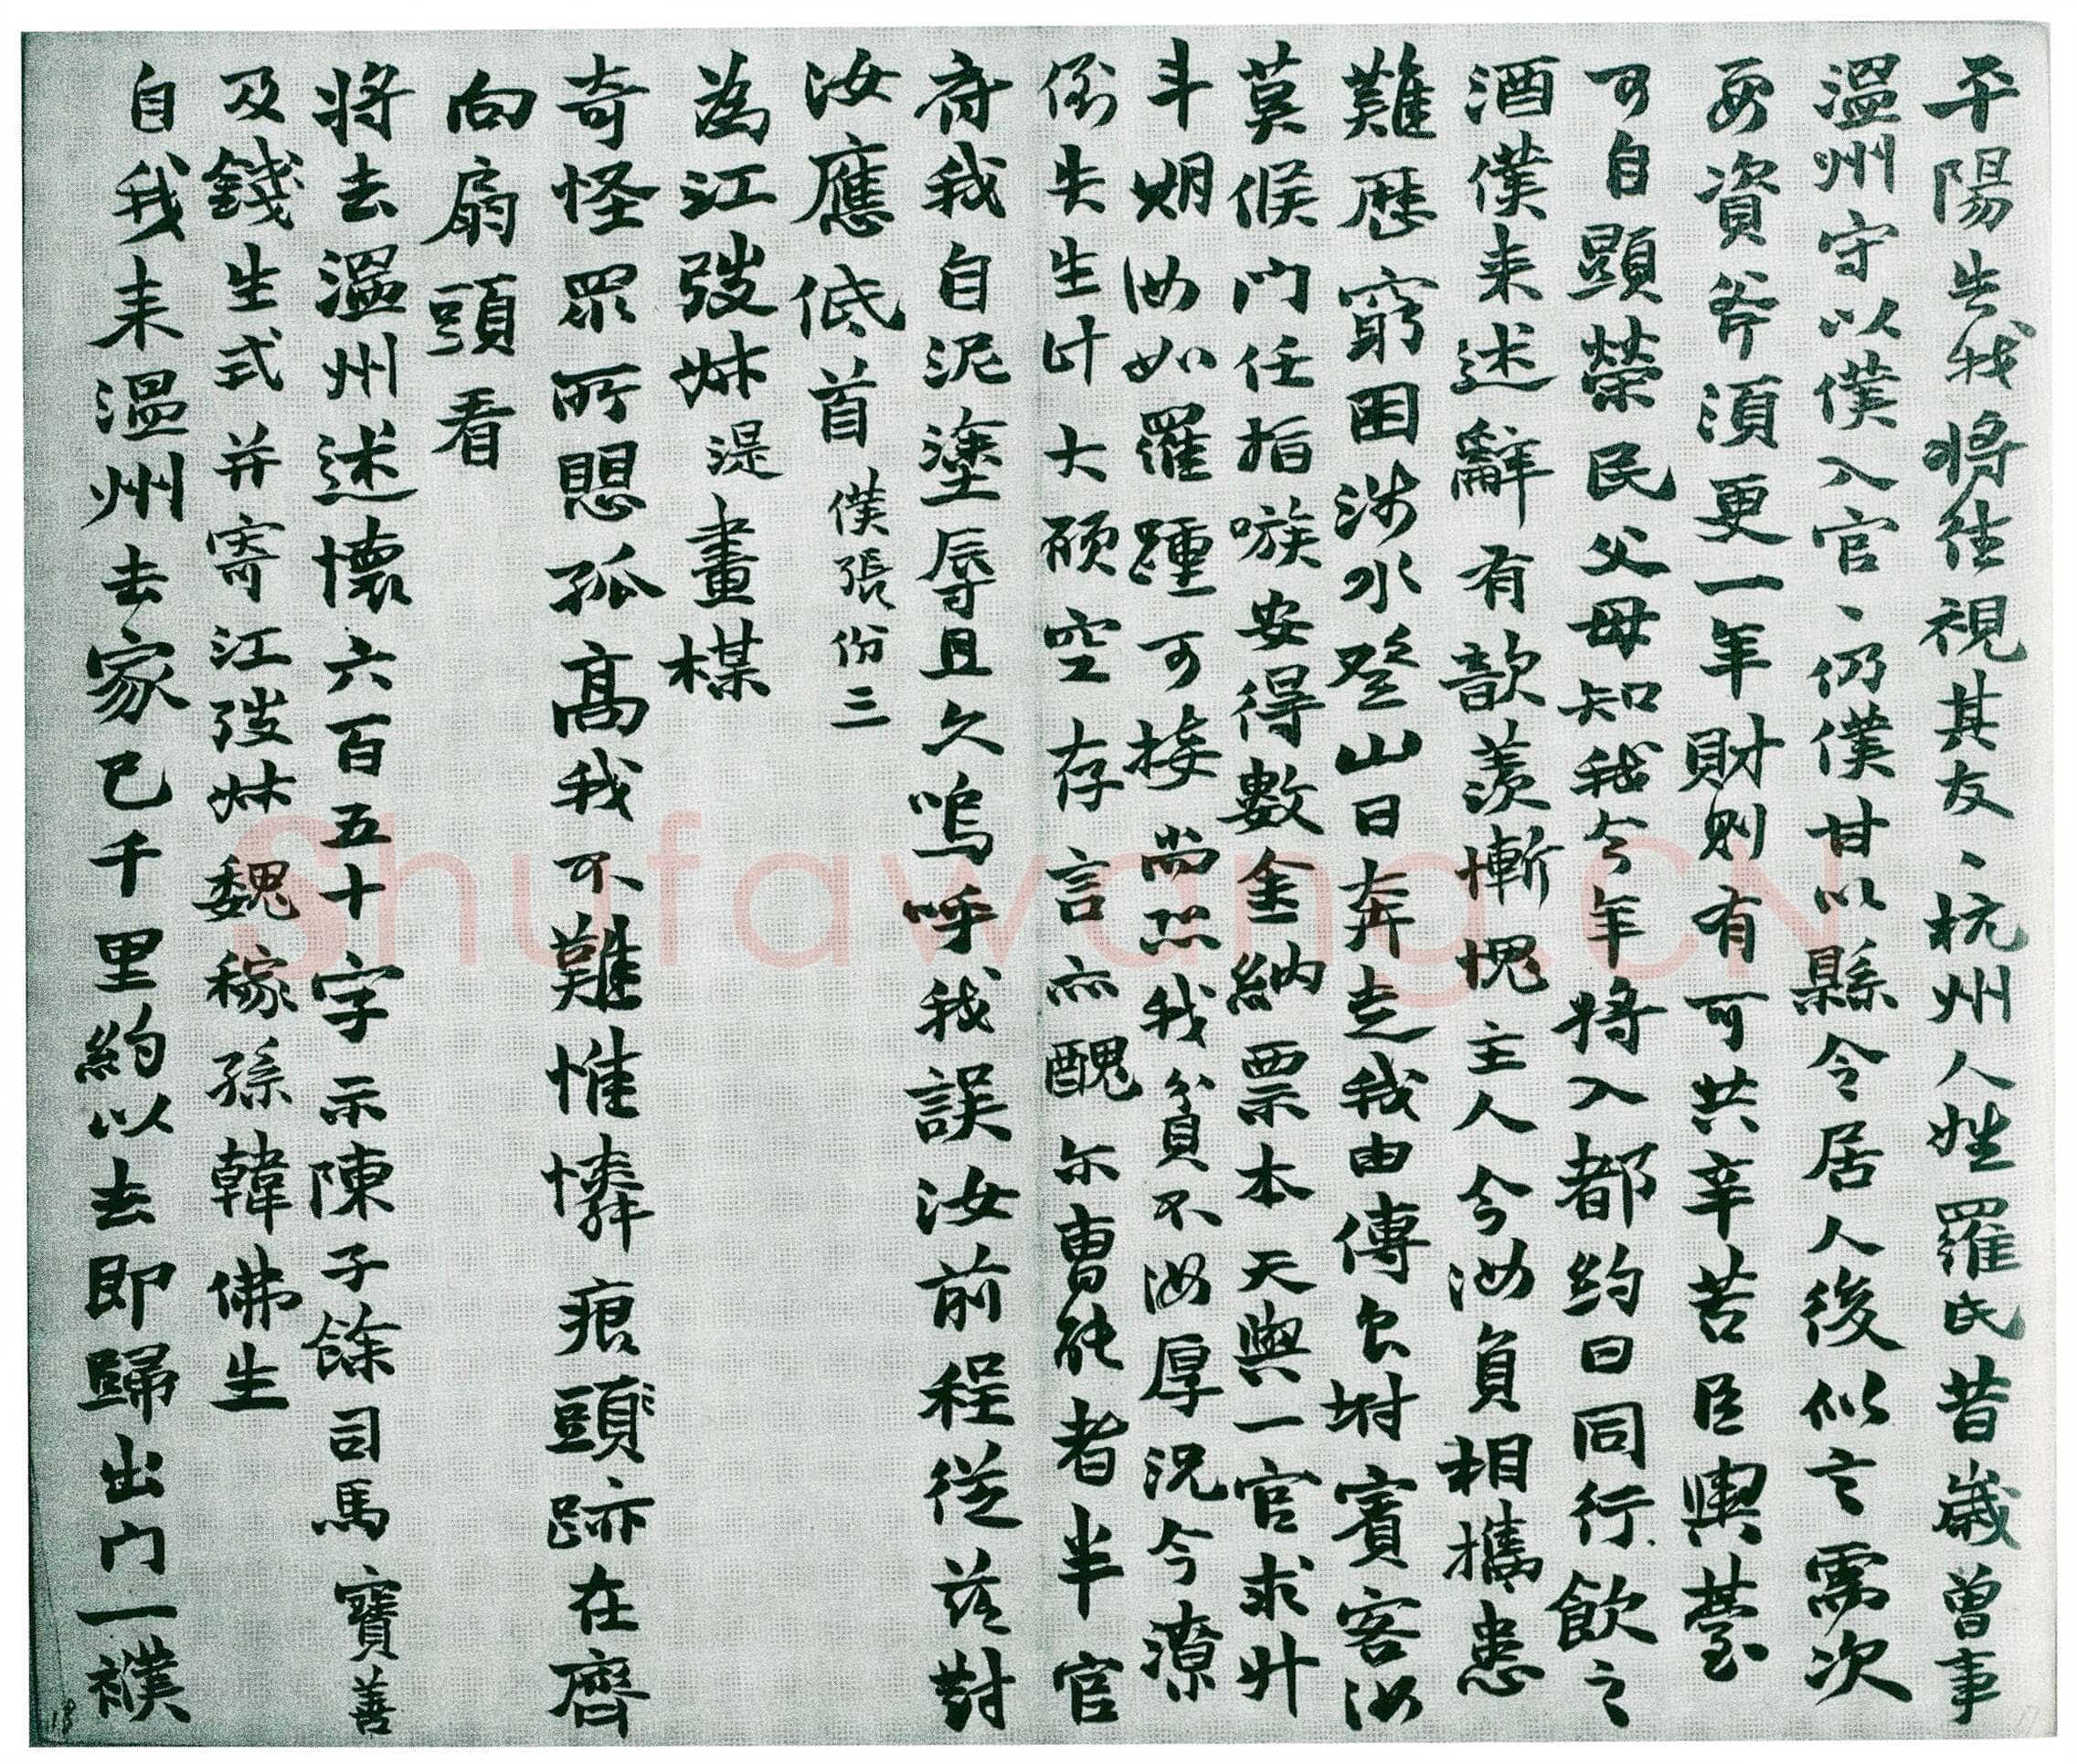 平陽告我將往視其友、杭州人姓羅氏昔歲曾事
溫州守以僕入官、仍僕甘以縣令居人後似言需次
要資斧須更一年財則有可共辛苦臣輿臺
可自顯榮民父母知我今年將入都約曰同行飲之
酒僕來述辭有歆羨慚愧主人今汝負相攜患
難歷窮困涉水登山日奔走我由傳食坿賓客汝
莫候門任指嗾安得數金納票本天與一官求升
斗烱汝如羅踵可接尚恐我貧不汝厚況今潦
倒失生計大碩空存言亦醜尔曹能者半官
府我自泥塗辱且久嗚呼我誤汝前程從茲對
汝應低首 僕張份三
為江弢叔湜畫楳
奇怪眾所愳孤高我不難惟憐痕頭跡在齊
向扇頭看
將去溫州述懷六百五十字示陳子餘司馬寶善
及錢生式并寄江弢叔魏稼孫韓佛生
自我來溫州去家已千里約以去即歸出門一襆
Shufawang.CN